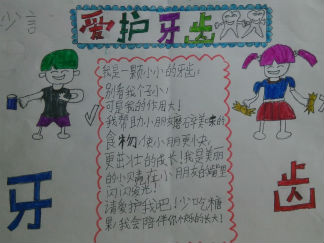 少言
爱护牙齿
我是一颗小小的牙齿:
别看我个子小
可是我的作用大!
我帮助小朋友磨碎美味的
食物使小朋友更快,
更茁壮的成长!我是美丽
的小贝壳在小朋友的嘴里
闪闪发光!
请爱护我吧!少吃糖
果,我会陪伴你
牙
齿